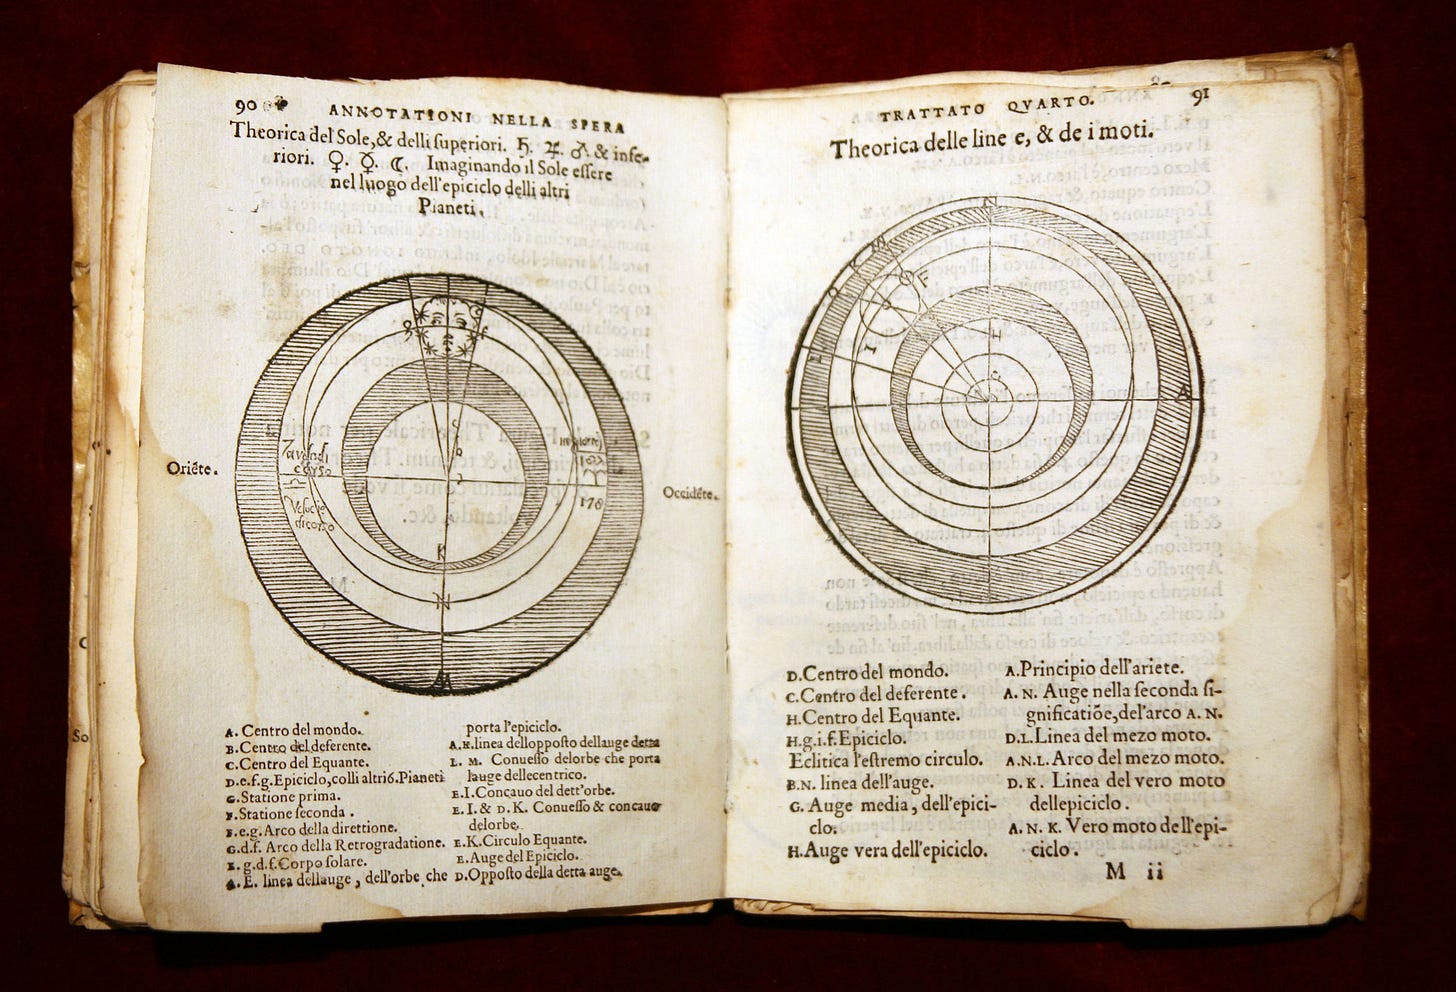 90
ANNOTATIONI NELLA SPERA
Theorica del Sole,& delli ſuperiori. ♄. ♃. ♂. & infe-
riori. ♀. ☿. ☾. Imaginando il Sole eſſere
nel luogo dell'epiciclo delli altri
Pianeti.
Oriéte.
Occidéte.
Veloc ie
di corſo
178
K
N
A. Centro del mondo.
B. Centro del deferente.
C. Centro del Equante.
D.e.f.g. Epiciclo, colli altri6. Pianeti
G. Statione prima.
F. Statione ſeconda .
F.e.g. Arco della direttione.
G.d.f. Arco della Retrogradatione.
E. g.d.f. Corpo ſolare.
A. E. linea dellauge , dell'orbe, che
porta l'epiciclo.
A.K. linea delloppoſto dellauge detta
L. M. Conueſſo delorbe che porta
lauge delleccentrico.
E.I. Concauo del dett'orbe.
E.I. & D.K. Conueſſo & concauo
delorbe.
E.K. Circulo Equante.
E. Auge del Epiciclo.
D. Oppoſto della detta auge.
TRATTATO QVARTO.
91
Theorica delle line e, & de i moti.
N
M
K
F
I
H
L
A
D. Centro del mondo.
C. Centro del deferente .
H. Centro del Equante.
H.g.i.f. Epiciclo.
Eclitica l'eſtremo circulo.
B.N. linea dell'auge.
G. Auge media , dell'epici-
clo.
H. Auge vera dell'epiciclo.
A. Principio dell'ariete.
A. N. Auge nella ſeconda ſi-
gnificatiõe, del'arco A. N.
D.L. Linea del mezo moto.
A.N.L. Arco del mezo moto.
D. K. Linea del vero moto
dellepiciclo .
A. N. K. Vero moto dell'epi-
ciclo .
M ii